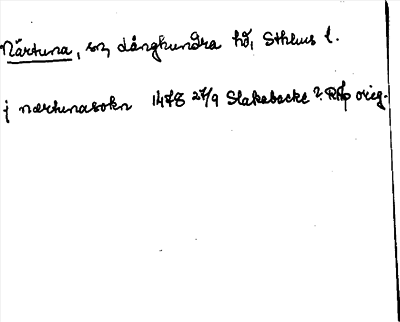 Närtuna, sn, Långhundra hd, Sthlms l.
j nærtunasokn 1478 27/9 Slakabacke ? RAp orig.